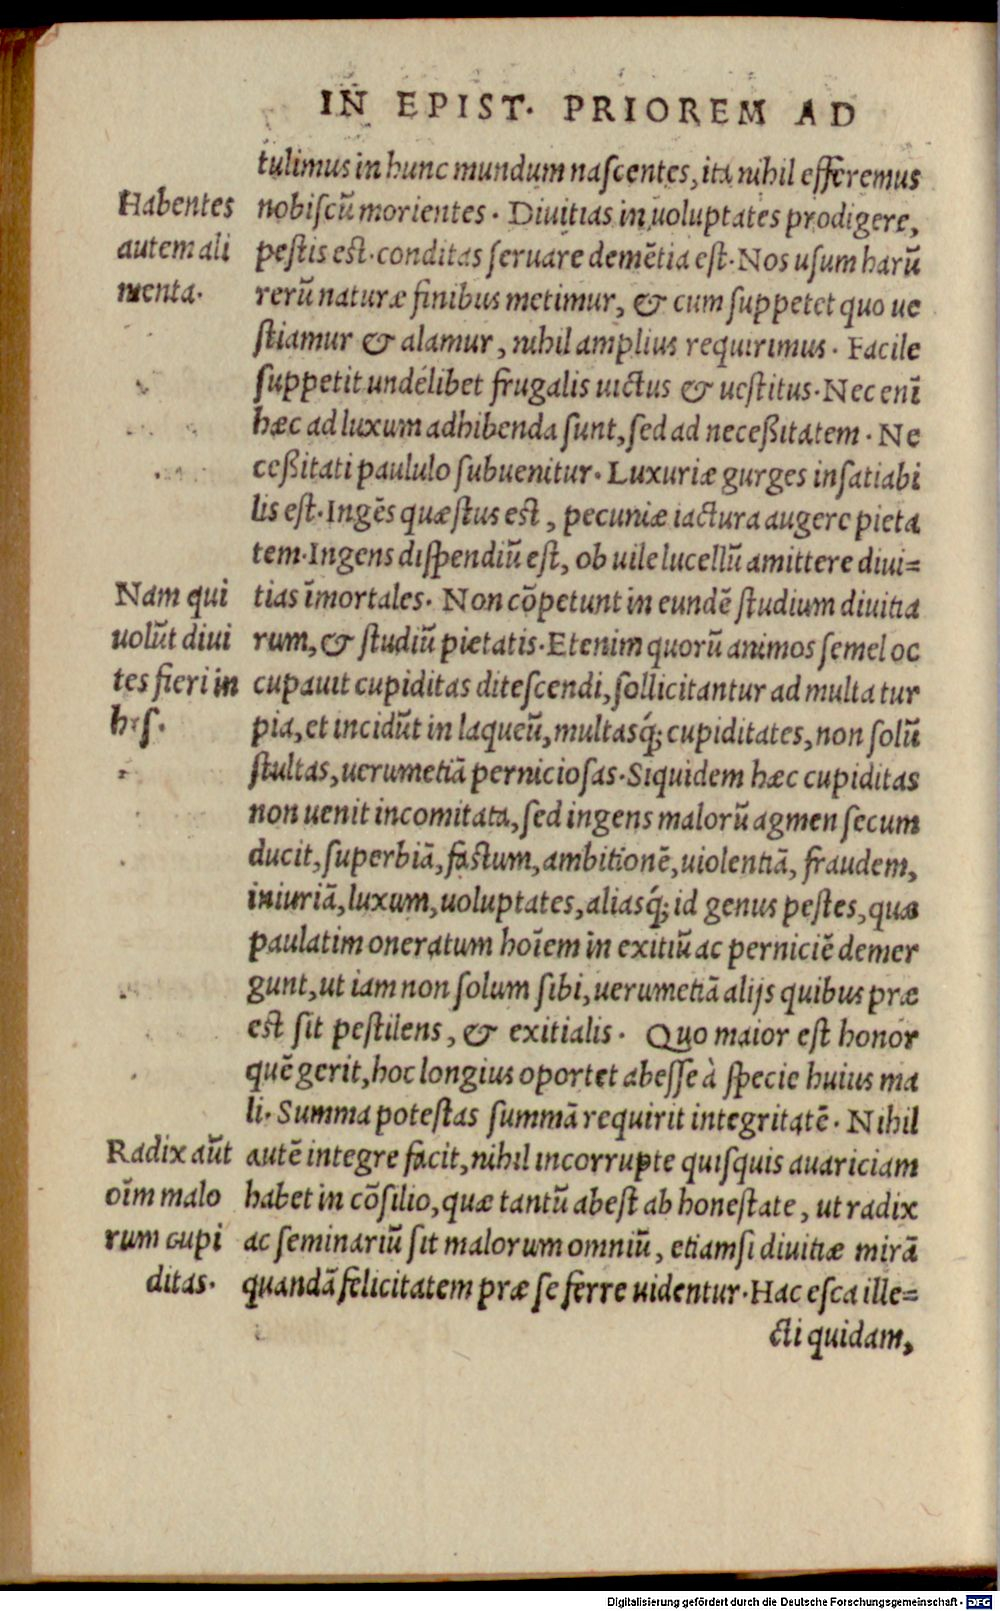 IN EPIST. PRIOREM AD
tulimus in hunc mundum nascentes, ita nihil efferemus
Habentes
autem ali
menta.
nobiscũ morientes. Divitias in uoluptates prodigere,
pestis est. conditas seruare demẽtia est. Nos usum harũ
rerũ naturæ finibus metimur, & cum suppetet quo ue
stiamur & alamur, nihil amplius requirimus. Facile
suppetit undelibet frugalis uictus & uestitus. Nec enĩ
hæc ad luxum adhibenda sunt, sed ad neceßitatem. Ne
ceßitati paululo subuenitur. Luxuriæ gurges insatiabi
lis est. Ingẽs quæstus est, pecuniæ iactura augere pieta
tem. Ingens dispendiũ est, ob uile lucellũ amittere diui=
Nam qui
uolũt diui
tes fieri in
hæs.
tias ĩmortales. Non cõpetunt in eundẽ studium diuitia
rum, & studiũ pietatis. Etenim quorũ animos semel oc
cupauit cupiditas ditescendi, sollicitantur ad multa tur
pia, et incidũt in laqueũ, multasq́; cupiditates, non solũ
stultas, uerumetiã perniciosas. Siquidem hæc cupiditas
non uenit incomitata, sed ingens malorũ agmen secum
ducit, superbiã, fastum, ambitionẽ, uiolentiã, fraudem,
iniuriã, luxum, uoluptates, aliasq́; id genus pestes, quæ
paulatim oneratum hoĩem in exitiũ ac perniciẽ demer
gunt, ut iam non solum sibi, uerumetiã alijs quibus præ
est sit pestilens, & exitialis. Quo maior est honor
quẽ gerit, hoc longius oportet abesse à specie huius ma
li. Summa potestas summã requirit integritatẽ. Nihil
Radix aũt
oĩm malo
rum cupi
ditas.
autẽ integre facit, nihil incorrupte quisquis auariciam
habet in cõsilio, quæ tantũ abest ab honestate, ut radix
ac seminariũ sit malorum omniũ, etiamsi diuitiæ mirã
quandã felicitatem præ se ferre uidentur. Hac esca ille=
cti quidam,
Digitalisierung gefördert durch die Deutsche Forschungsgemeinschaft - DFG